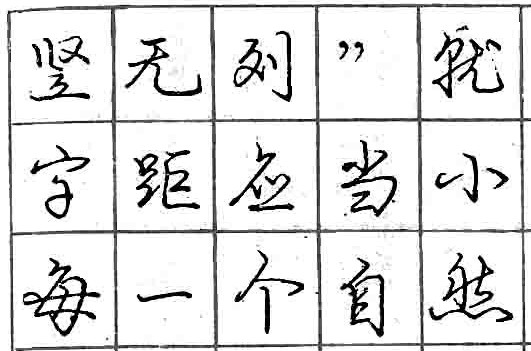 竖无列”就
字距应当小
每一个自然